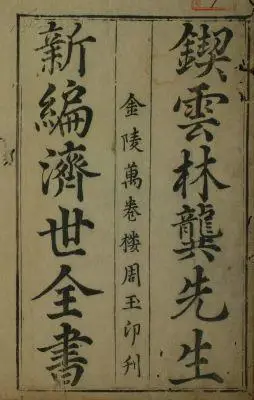 鍥雲林龔先生
新編濟世全書
金陵萬卷樓周玉印刊